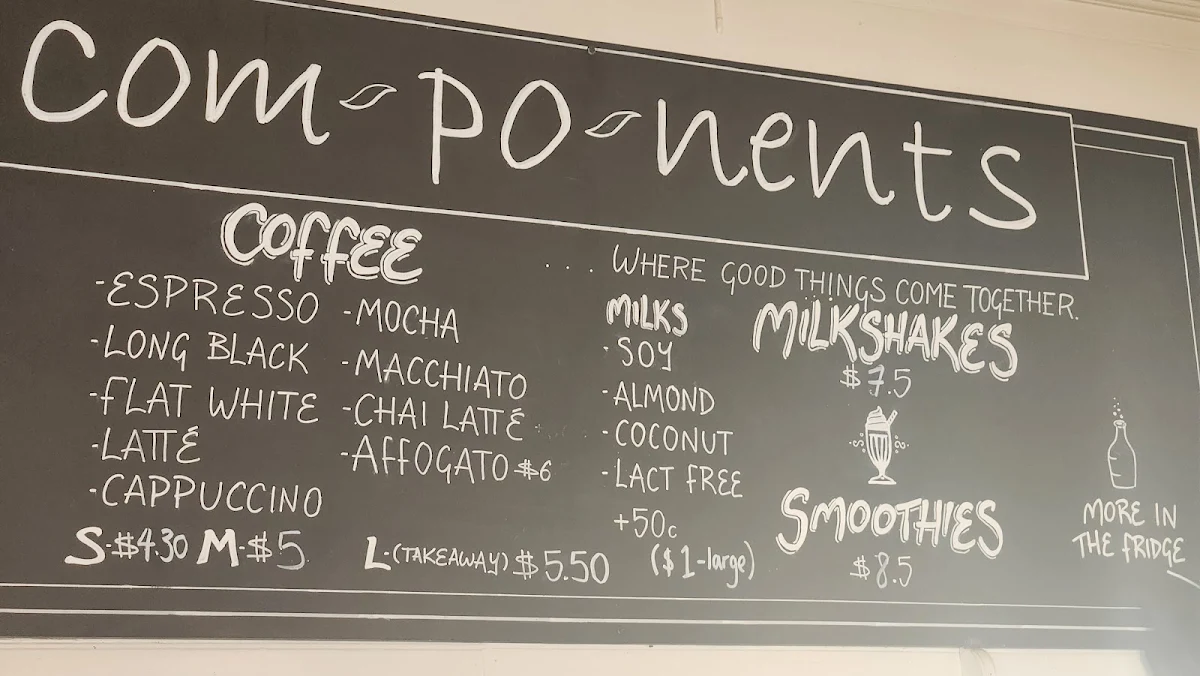 com-po-nents
... WHERE GOOD THINGS COME TOGETHER.
COFFEE
-ESPRESSO
-LONG BLACK
-FLAT WHITE
-LATTÉ
-CAPPUCCINO
-MOCHA
-MACCHIATO
-CHAI LATTÉ
-AFFOGATO $6
S-$4.30 M-$5 L-(TAKEAWAY) $5.50
MILKS
-SOY
-ALMOND
-COCONUT
-LACT FREE
+50c
($1-large)
MILKSHAKES
$7.5
SMOOTHIES
$8.5
MORE IN
THE FRIDGE